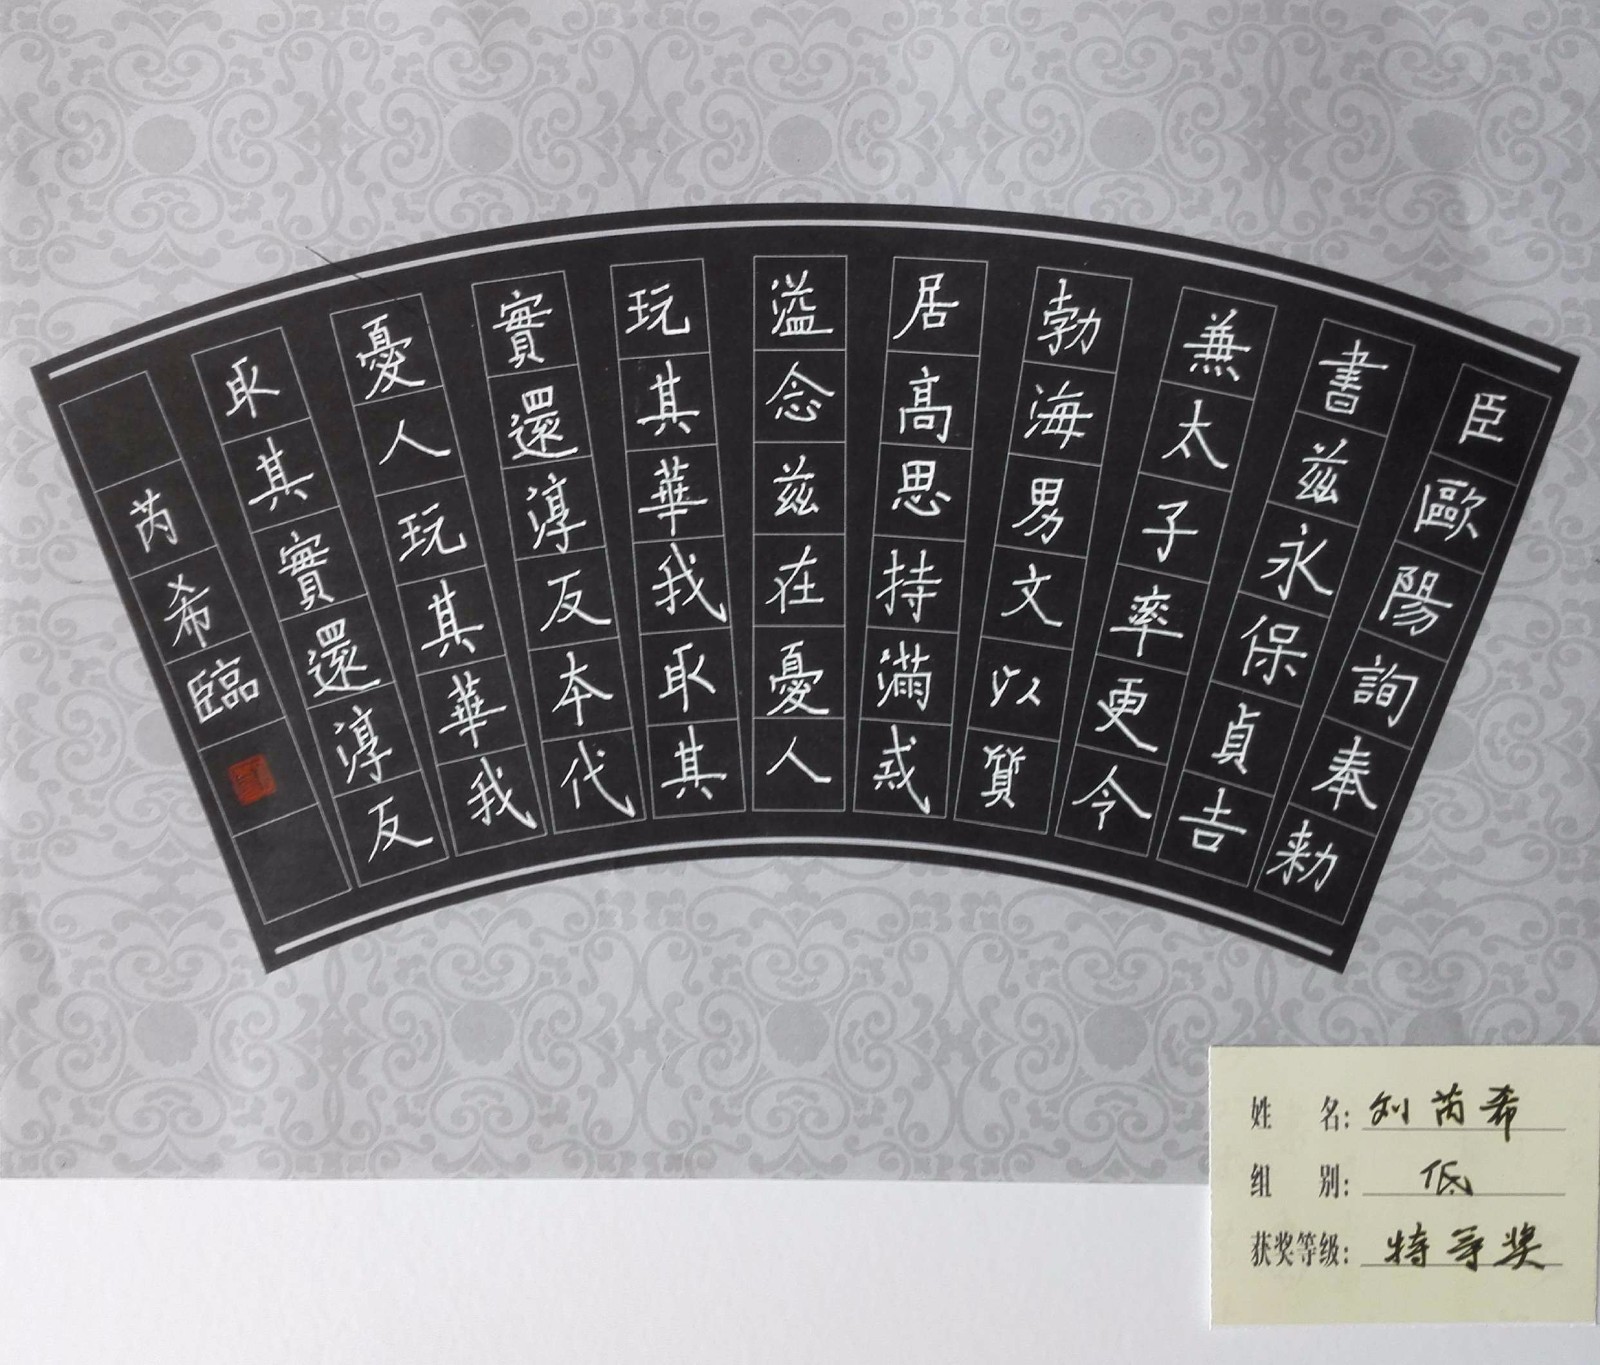 臣歐陽詢奉勑
書兹永保貞吉
兼太子率更令
勃海男文以質
居高思持滿戒
溢念兹在憂人
玩其華我取其
實還淳反本代
憂人玩其華我
取其實還淳反
芮希臨
姓名：刘芮希
组别：低
获奖等级：特等奖